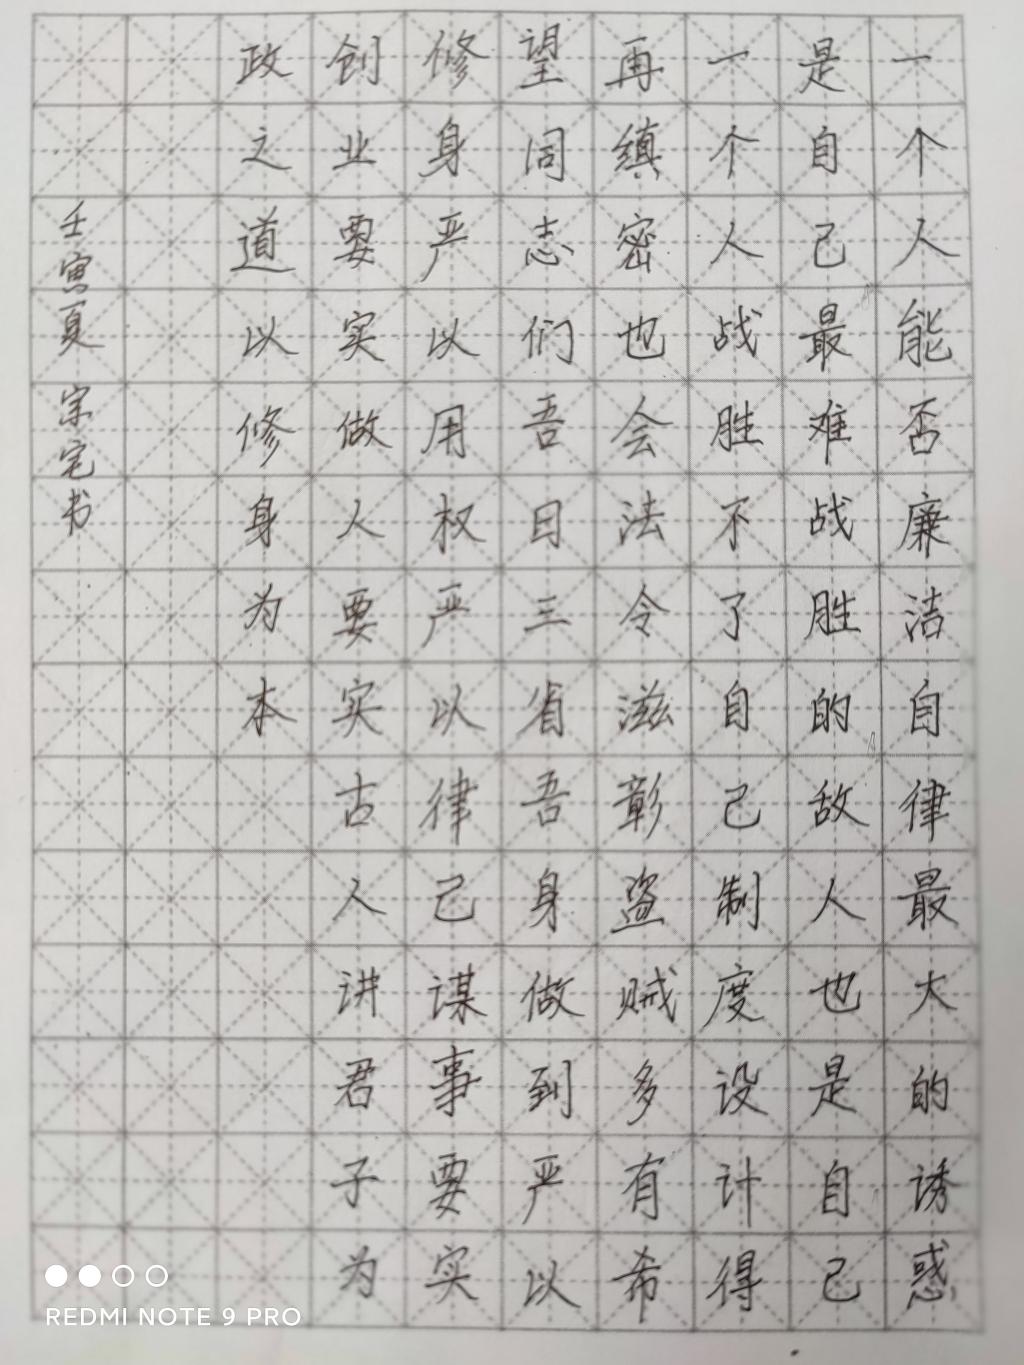 一个人能否廉洁自律最大的诱惑
是自己最难战胜的敌人也是自己
一个人战胜不了自己制度设计得
再缜密也会法令滋彰盗贼多有希
望同志们吾日三省吾身做到严以
修身严以用权严以律己谋事要实
创业要实做人要实古人讲君子为
政之道以修身为本
壬寅夏 宗宅书
REDMI NOTE 9 PRO